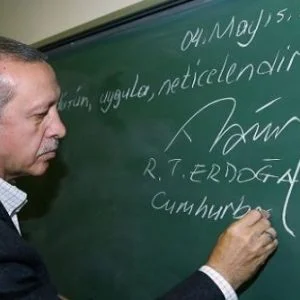 04. Mayıs.
uygula, neticelendir
R. T. ERDOĞA
Cumhurba